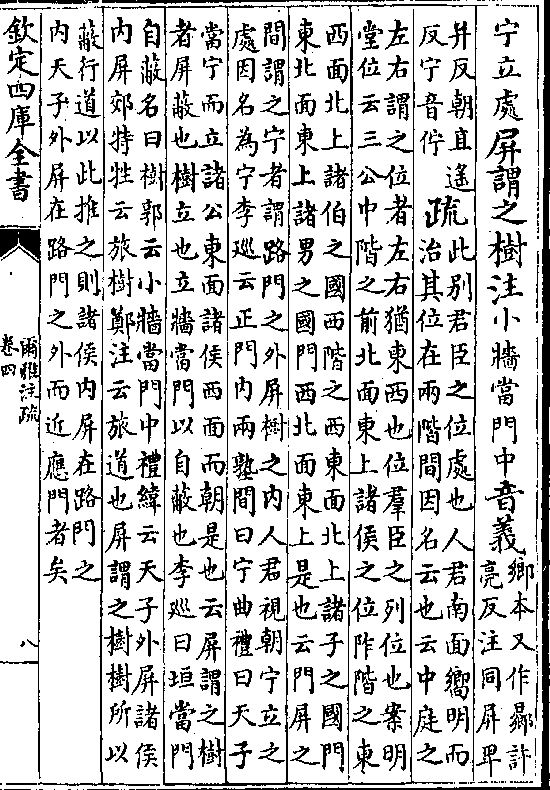 宁立處屏謂之樹注小牆當門中音義
鄉本又作曏許
亮反注同屏卑
幷反朝直遥
反宁音佇
疏
此别君臣之位處也人君南面嚮明而
治其位在兩階間因名云也云中庭之
左右謂之位者左右猶東西也位羣臣之列位也案明
堂位云三公中階之前北面東上諸侯之位阼階之東
西面北上諸伯之國西階之西東面北上諸子之國門
東北面東上諸男之國門西北面東上是也云門屏之
間謂之宁者謂路門之外屏樹之内人君視朝宁立之
處因名為宁李廵云正門内兩塾間曰宁曲禮曰天子
當宁而立諸公東面諸侯西面而朝是也云屏謂之樹
者屏蔽也樹立也立牆當門以自蔽也李廵曰垣當門
自蔽名曰樹郭云小牆當門中禮緯云天子外屏諸侯
内屏郊特牲云旅樹鄭注云旅道也屏謂之樹樹所以
蔽行道以此推之則諸侯内屏在路門之
内天子外屏在路門之外而近應門者矣
欽定四庫全書
爾雅注疏
卷四
八